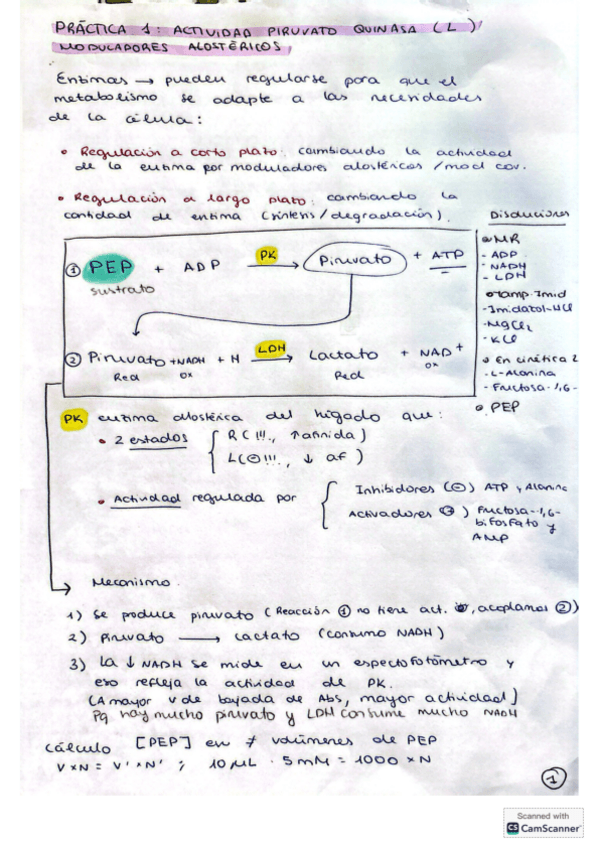 PRÁCTICA 1: ACTIVIDAD PIRUVATO QUINASA (L)
MODULADORES ALOSTÉRICOS
Enzimas → pueden regularse para que el
metabolismo se adapte a las necesidades
de la célula:
• Regulación a corto plazo: cambiando la actividad
de la enzima por moduladores alostéricos / mod cov.
• Regulación a largo plazo: cambiando la
cantidad de enzima (síntesis / degradación).
① PEP + ADP PK → Piruvato + ATP
sustrato
② Piruvato + NADH + H LDH → Lactato + NAD+
Red ox Red ox
Disoluciones
MR
- ADP
- NADH
- LDH
Tamp. Imid
- Imidazol-HCl
- MgCl2
- KCl
En cinética 2
- L-Alanina
- Fructosa-1,6-
PEP
PK enzima alostérica del hígado que:
• 2 estados { R ( !!!, ↑ afinida)
L(⊖!!!, ↓ af )
• Actividad regulada por { Inhibidores (⊖) ATP y Alanina
Activadores ⊕ ) Fructosa-1,6-
bifosfato y
AMP
Mecanismo.
1) Se produce piruvato (Reacción ① no tiene act. , acoplamos ②)
2) Piruvato → Lactato (consumo NADH)
3) La ↓ NADH se mide en un espectofotómetro y
eso refleja la actividad de PK.
(A mayor v de bajada de Abs, mayor actividad)
Pq hay mucho piruvato y LDH consume mucho NADH
cálculo [PEP] en ≠ volúmenes de PEP
V × N = V' × N' ; 10 µL · 5 mM = 1000 × N
①
Scanned with
CS CamScanner